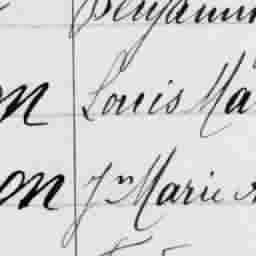 Benjamin
on Louis Ma
on Jn Marie